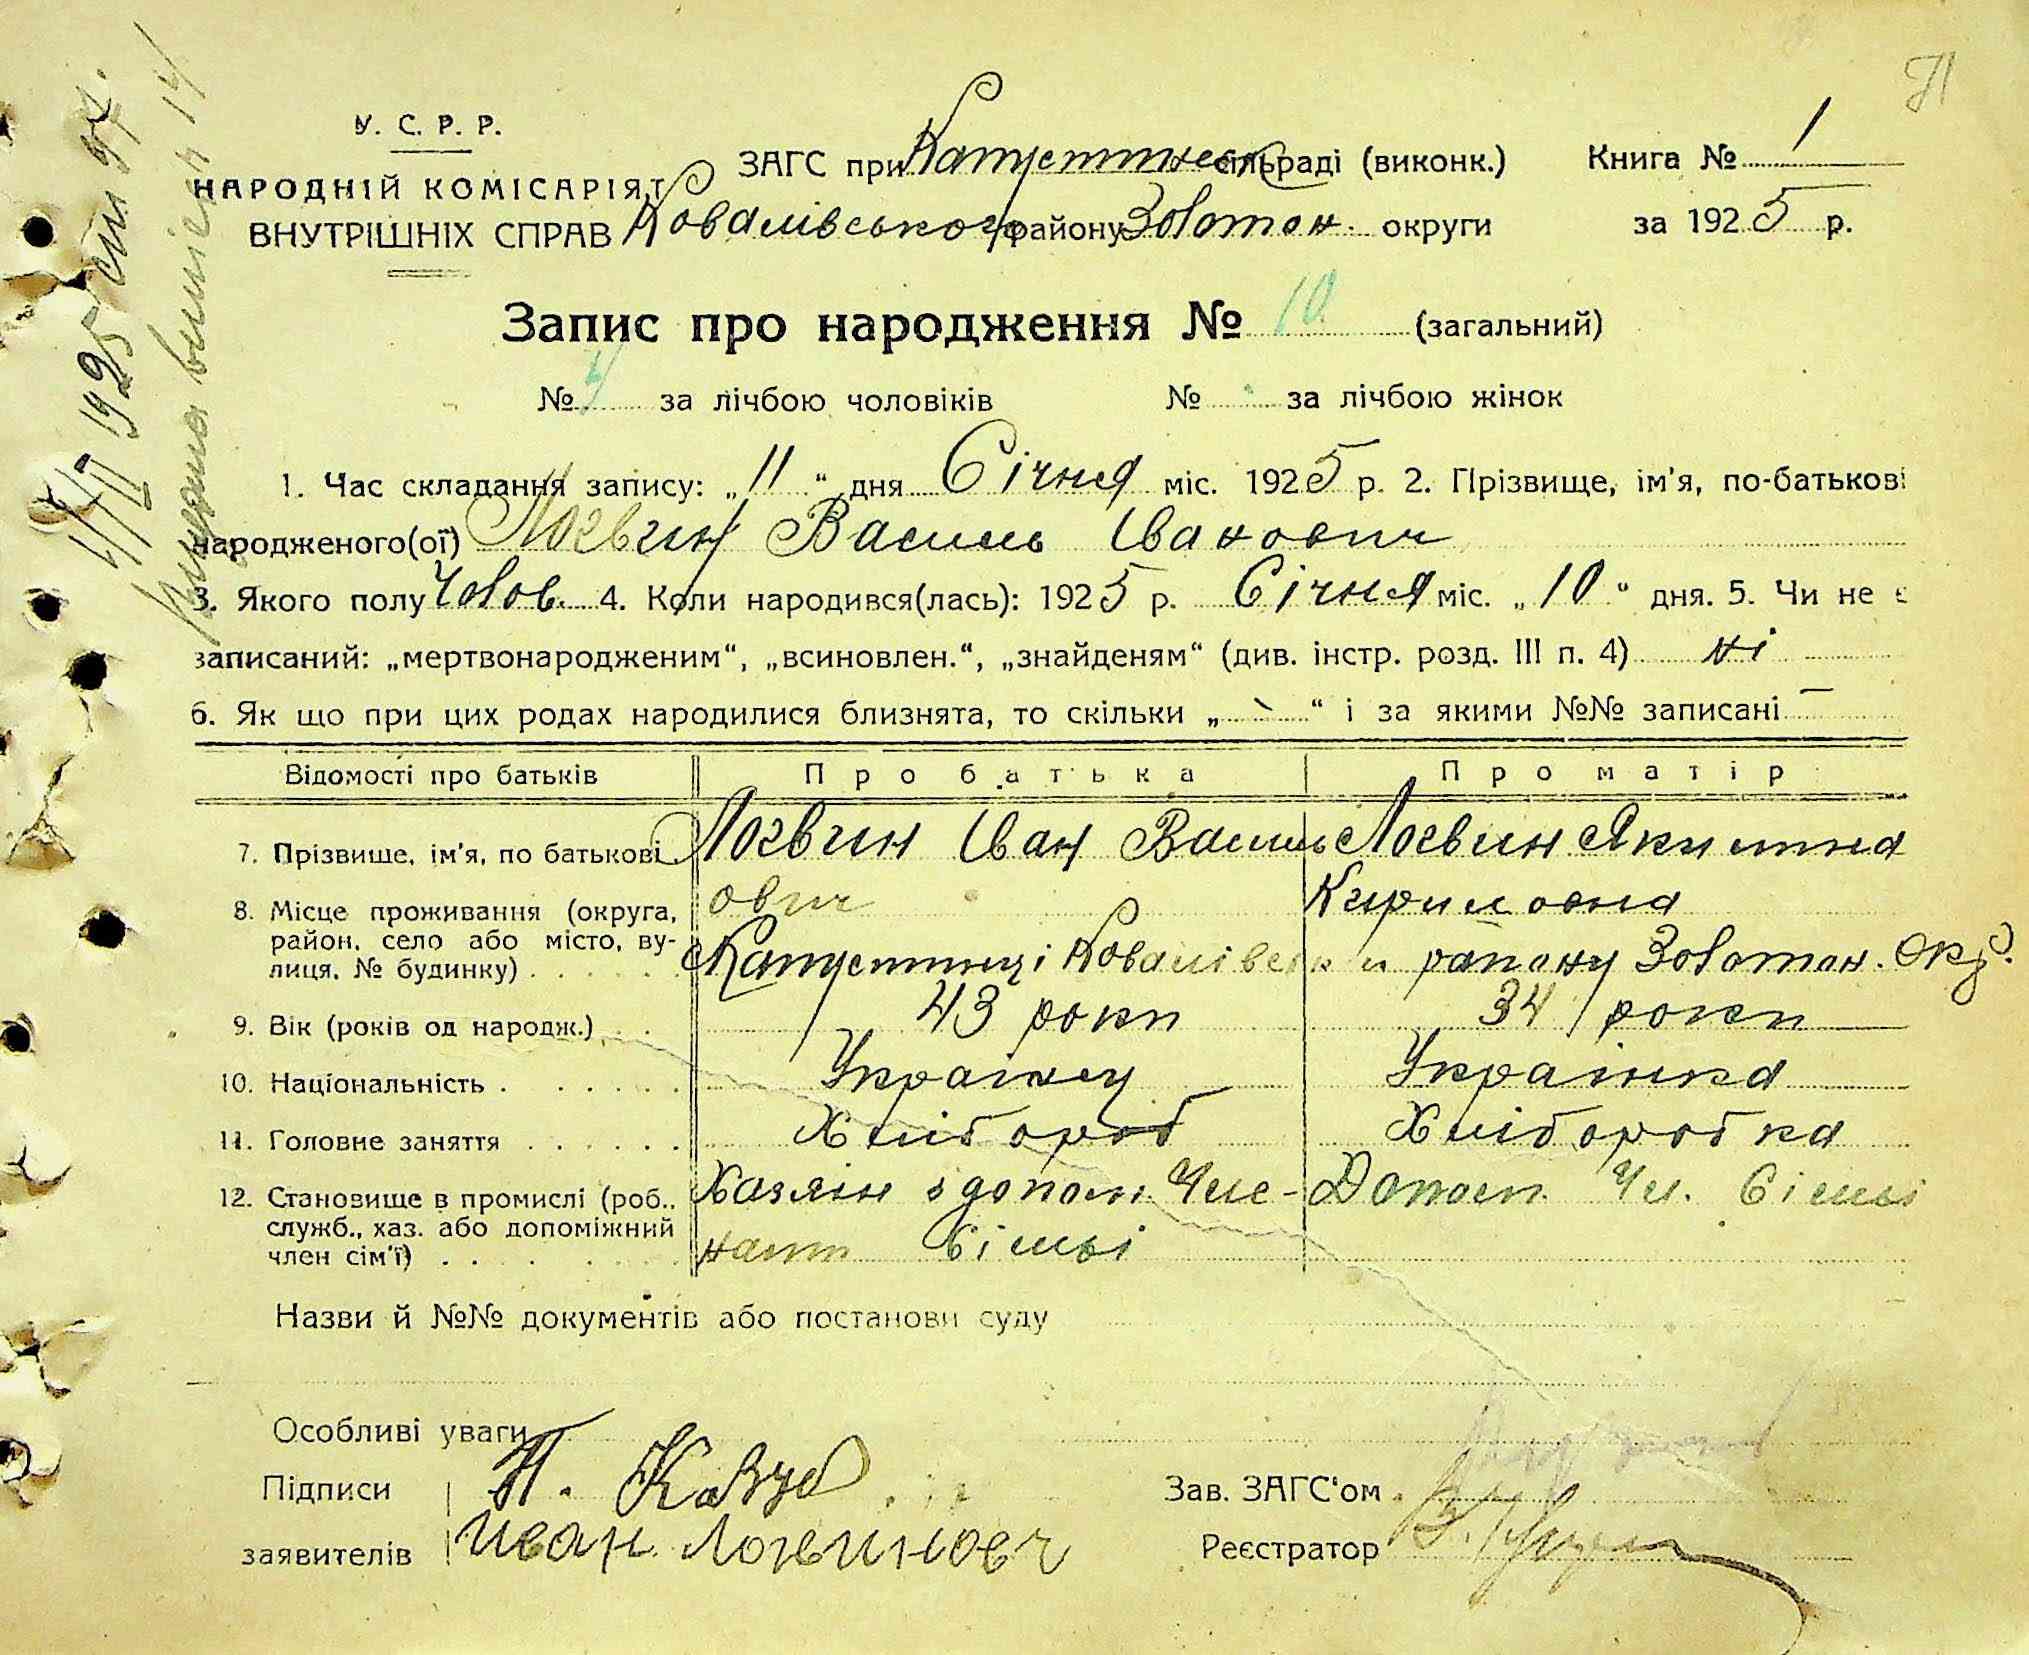 У. С. Р. Р.
НАРОДНІЙ КОМІСАРІЯТ
ВНУТРІШНІХ СПРАВ
ЗАГС при Капустинск сільраді (виконк.)
Ковалівського району Золотон. округи
Книга № 1
за 1925 р.
Запис про народження № 10 (загальний)
№ 4 за лічбою чоловіків № за лічбою жінок
1. Час складання запису: „11“ дня Січня міс. 1925 р. 2. Прізвище, ім'я, по-батькові
народженого(ої) Логвин Василь Іванович
3. Якого полу Чолов. 4. Коли народився(лась): 1925 р. Січня міс. „10“ дня. 5. Чи не є
записаний: „мертвонародженим“, „всиновлен.“, „знайденям“ (див. інстр. розд. III п. 4) ні
6. Як що при цих родах народилися близнята, то скільки „ - “ і за якими №№ записані —
Відомості про батьків Про батька Про матір
7. Прізвище, ім'я, по батькові Логвин Іван Василь Логвин Якилина
ович Кириловна
8. Місце проживання (округа,
район, село або місто, ву-
лиця, № будинку) . . . . . Капустинці Ковалівськи району Золотон. Окр.
9. Вік (років од народж.) . . 43 роки 34 роки
10. Національність . . . . . . Українец Українка
11. Головне заняття . . . . . . Хлібороб Хліборобка
12. Становище в промислі (роб.,
служб., хаз. або допоміжний
член сім'ї) . . . . . . Хазяін з допом. Чле- Допом. Чл. Сімьі
нами Сімьі
Назви й №№ документів або постанови суду
Особливі уваги
Підписи
заявителів
Иван Логвинов
Зав. ЗАГС'ом
Реєстратор